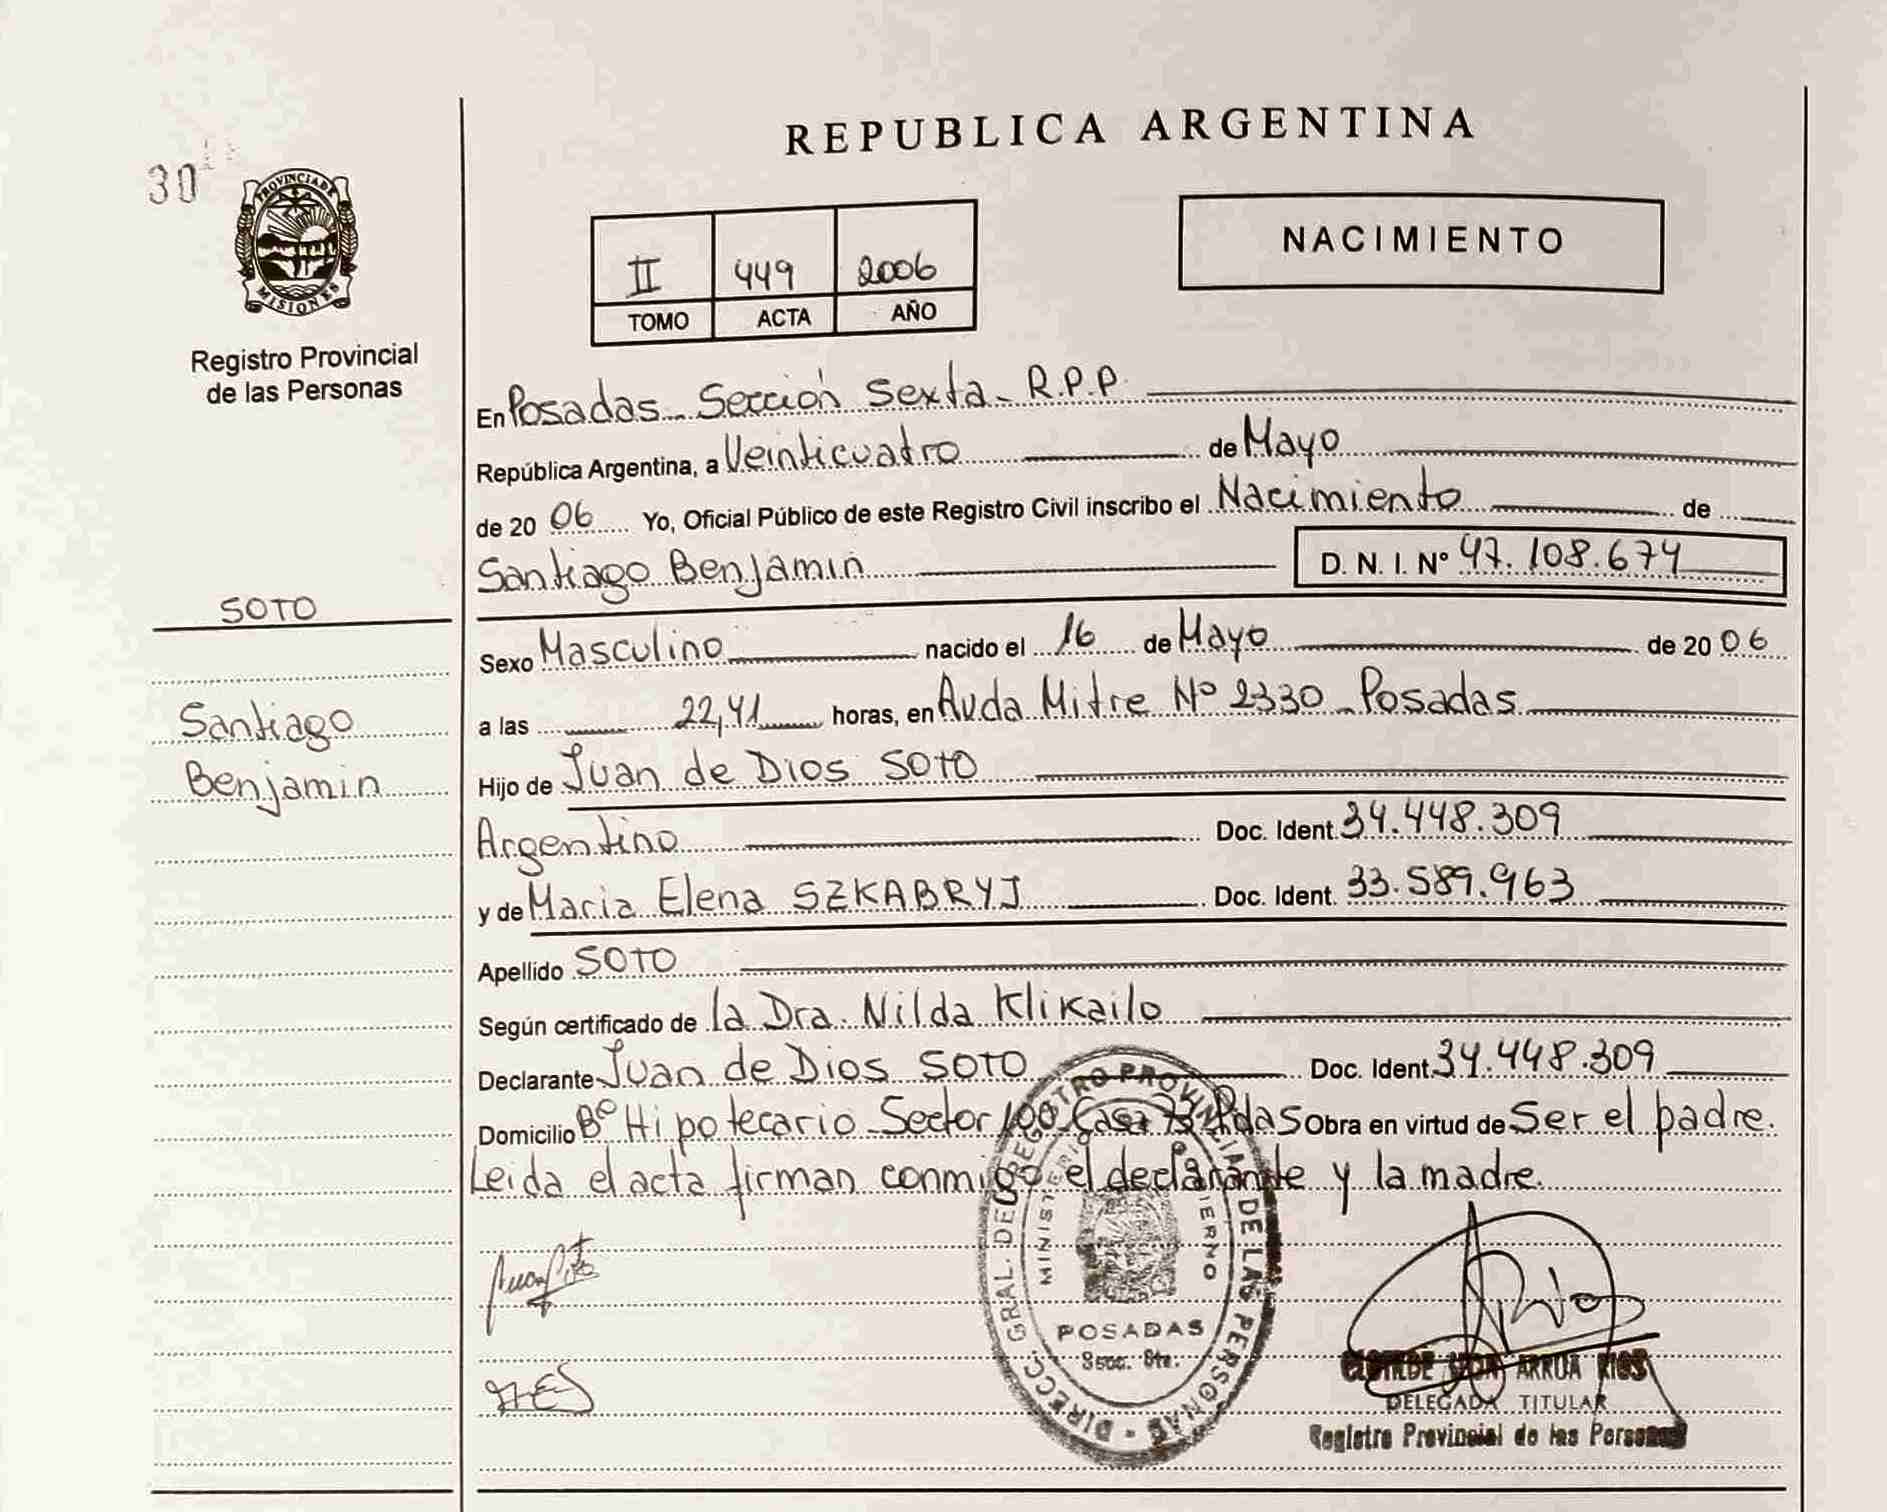 REPUBLICA ARGENTINA
30
PROVINCIA DE
MISIONES
Registro Provincial
de las Personas
NACIMIENTO
II 449 2006
TOMO ACTA AÑO
En Posadas Sección Sexta - R.P.P.
República Argentina, a Veinticuatro de Mayo
de 20 06 Yo, Oficial Público de este Registro Civil inscribo el Nacimiento de
Santiago Benjamin D. N. I. Nº 47.108.674
SOTO
Santiago
Benjamin
Sexo Masculino nacido el 16 de Mayo de 20 06
a las 22,41 horas, en Avda Mitre Nº 2330 - Posadas
Hijo de Juan de Dios SOTO
Argentino Doc. Ident. 34.448.309
y de Maria Elena SZKABRYJ Doc. Ident. 33.589.963
Apellido SOTO
Según certificado de la Dra. Nilda Klikailo
Declarante Juan de Dios SOTO Doc. Ident. 34.448.309
Domicilio Bº Hipotecario - Sector 100 Casa 73 Pdas Obra en virtud de Ser el padre.
Leida el acta firman conmigo el declarante y la madre.
DIRECC. GRAL. DEL REGISTRO PROVINCIAL DE LAS PERSONAS
MINISTERIO GOBIERNO
POSADAS
Secc. 6ta.
ARRUA RIOS
DELEGADA TITULAR
Registro Provincial de las Personas